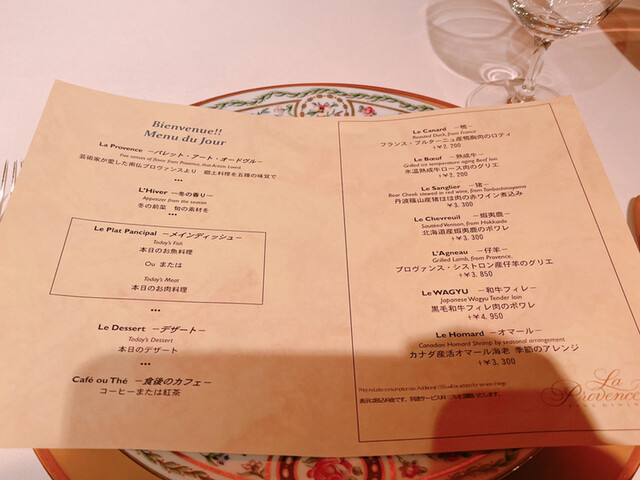 Bienvenue!!
Menu du Jour
La Provence －パレット・アート・オードヴル－
Five senses of flavor from Provence, that Artists Loved.
芸術家が愛した南仏プロヴァンスより 郷土料理を五種の味覚で
•••
L'Hiver －冬の香り－
Appetizer from the season
冬の前菜 旬の素材を
•••
Le Plat Pancipal －メインディッシュ－
Today's Fish
本日のお魚料理
Ou または
Today's Meat
本日のお肉料理
•••
Le Dessert －デザート－
Today's Dessert
本日のデザート
•••
Café ou Thé －食後のカフェ－
コーヒーまたは紅茶
Le Canard －鴨－
Roasted Duck, from France
フランス・ブルターニュ産鴨胸肉のロティ
+￥2,200
Le Bœuf －熟成牛－
Grilled ice temperature aging Beef loin
氷温熟成牛ロース肉のグリエ
+￥2,200
Le Sanglier －猪－
Boar Cheek stewed in red wine, from Tanbasasayama
丹波篠山産猪ほほ肉の赤ワイン煮込み
￥3,300
Le Chevreuil －蝦夷鹿－
Sautéed Venison, from Hokkaido
北海道産蝦夷鹿のポワレ
+￥3,300
L'Agneau －仔羊－
Grilled Lamb, from Provence.
プロヴァンス・シストロン産仔羊のグリエ
+￥3,850
Le WAGYU －和牛フィレ－
Japanese Wagyu Tender loin
黒毛和牛フィレ肉のポワレ
+￥4,950
Le Homard －オマール－
Canadian Homard Shrimp by seasonal arrangement
カナダ産活オマール海老 季節のアレンジ
+￥3,300
表示は税込料金です。別途サービス料
La Provence